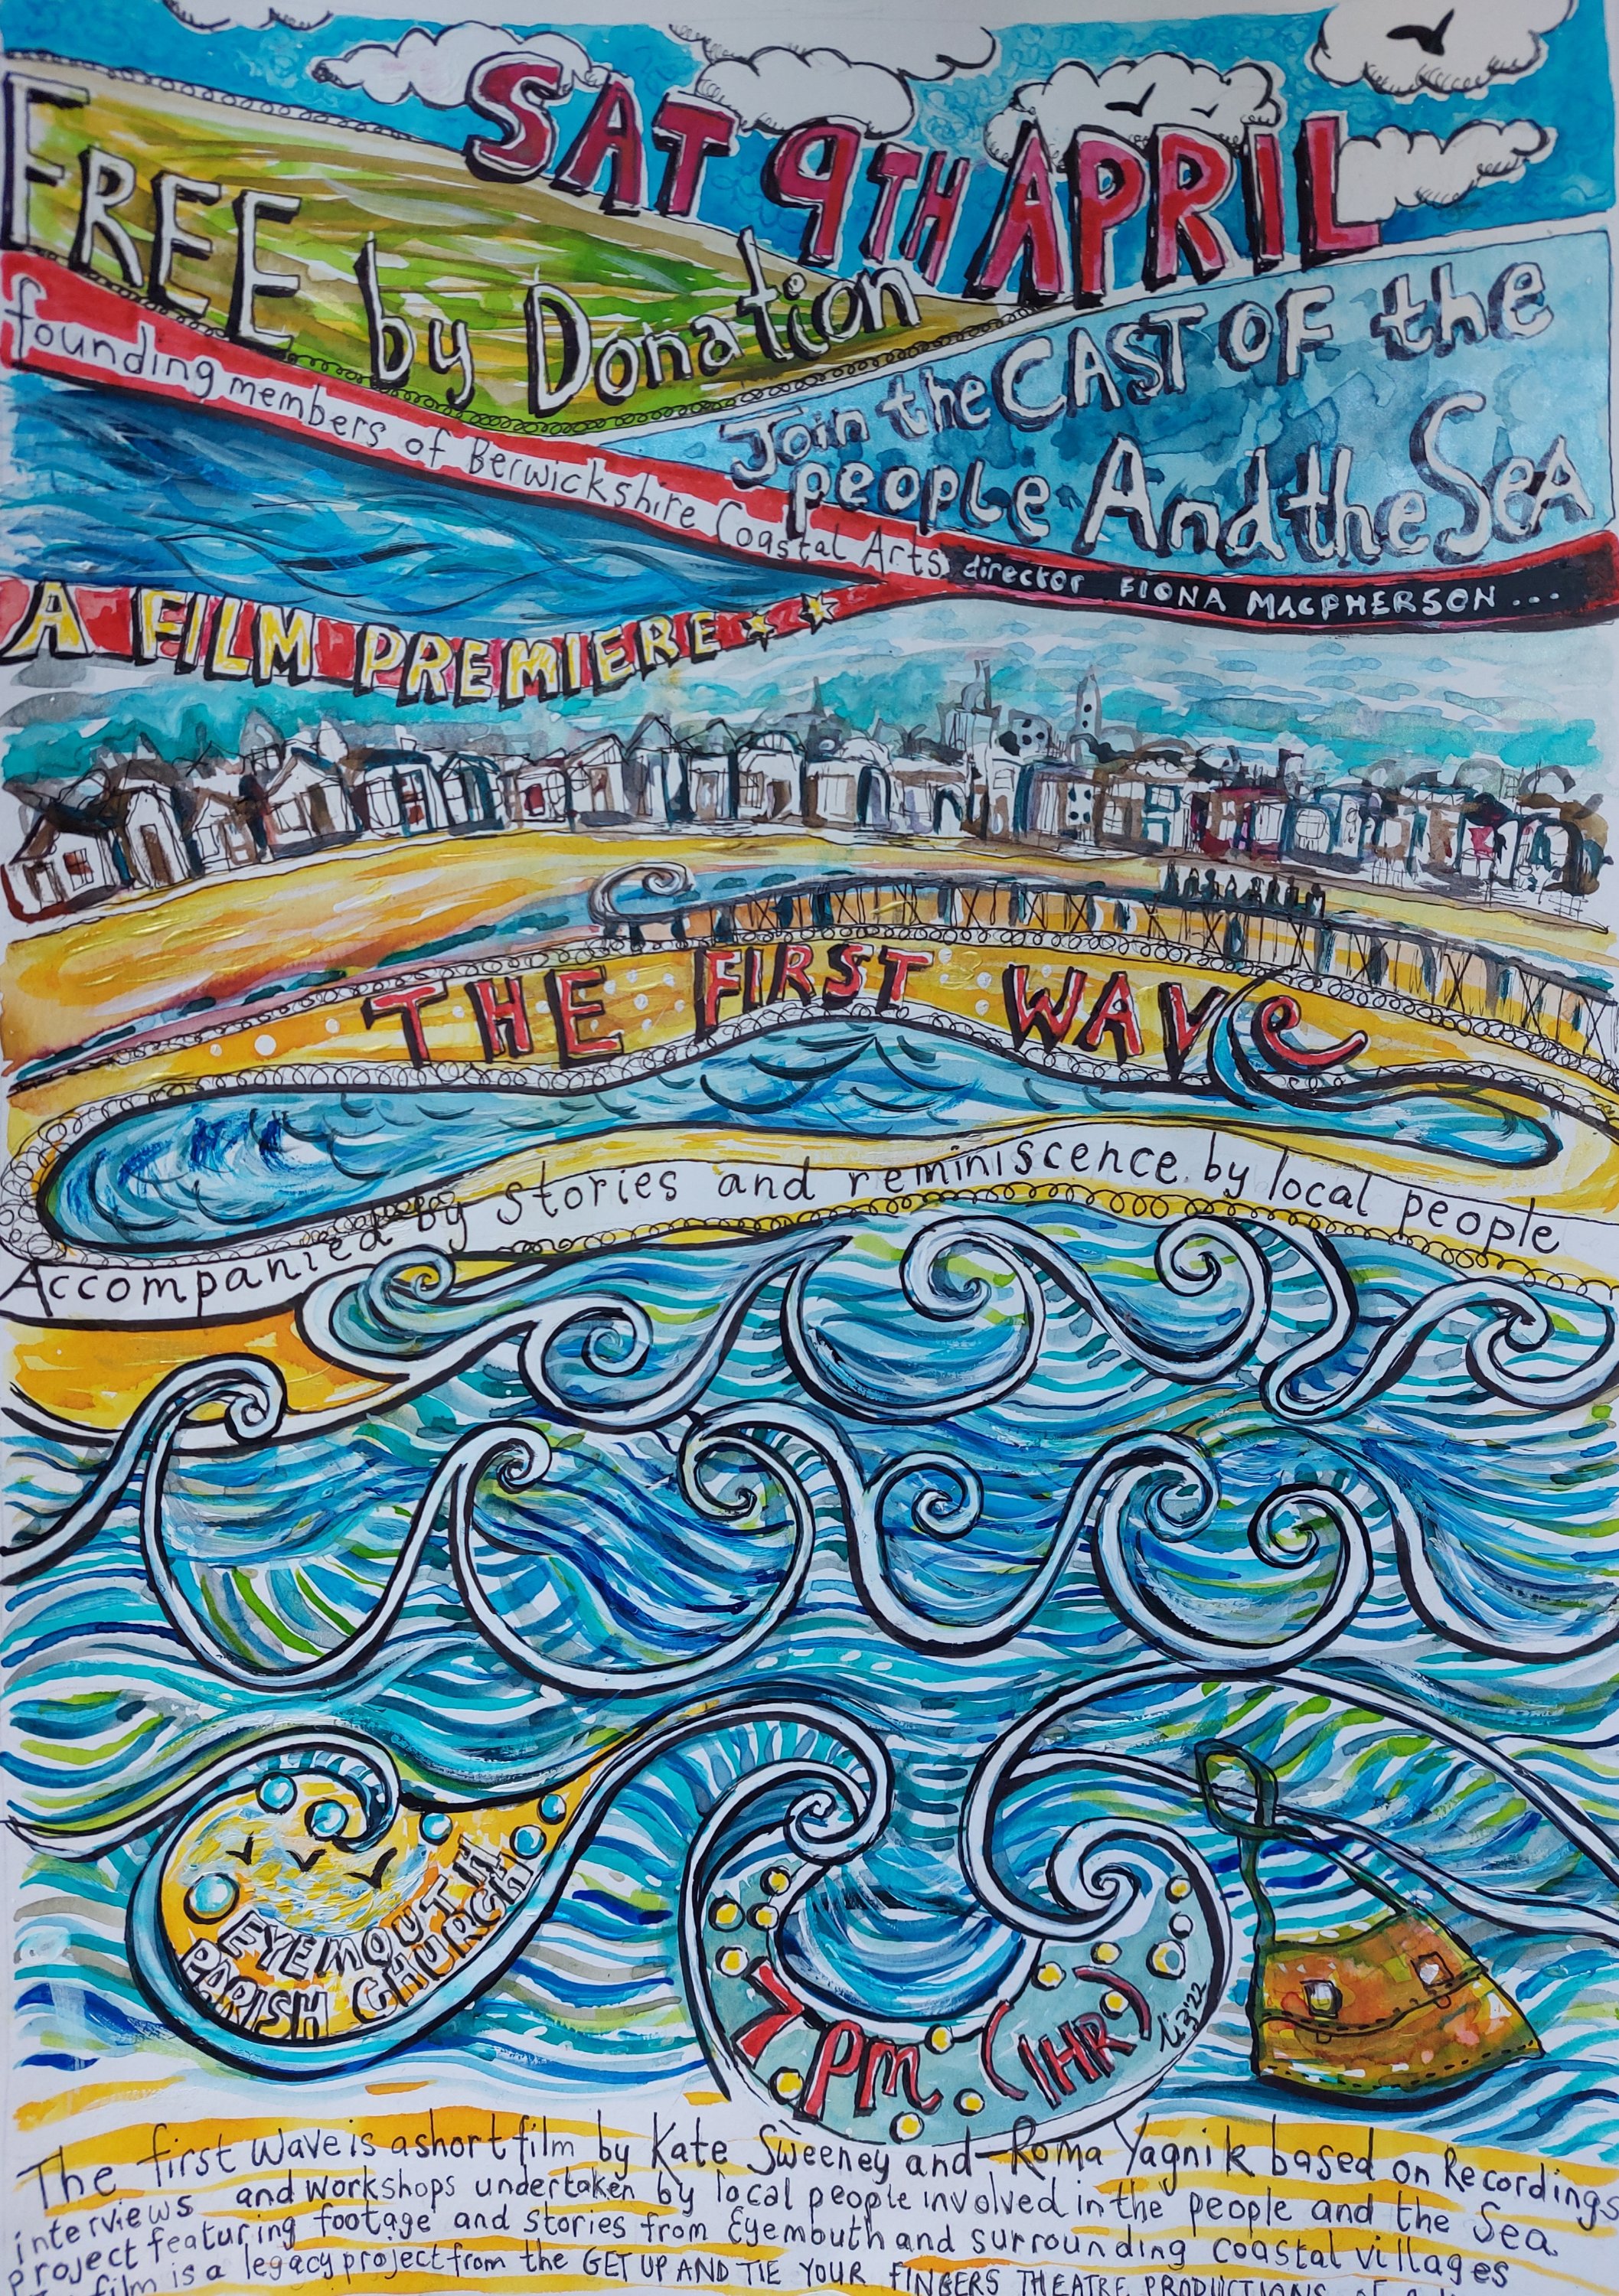 SAT 9TH APRIL
FREE by Donation
founding members of Berwickshire Coastal Arts
Join the CAST OF the
people And the SeA
director FIONA MACPHERSON...
A FILM PREMIERE
THE FIRST WAVe
Accompanied by stories and reminiscence by local people
EYEMOUTH
PARISH CHURCH
7pm (1HR)
Liz '22
The first Wave is a short film by Kate Sweeney and Roma Yagnik based on Recordings
interviews and workshops undertaken by local people involved in the people and the Sea
project featuring footage and stories from Eyemouth and surrounding coastal villages
film is a legacy project from the GET UP AND TIE YOUR FINGERS THEATRE PRODUCTIONS OF